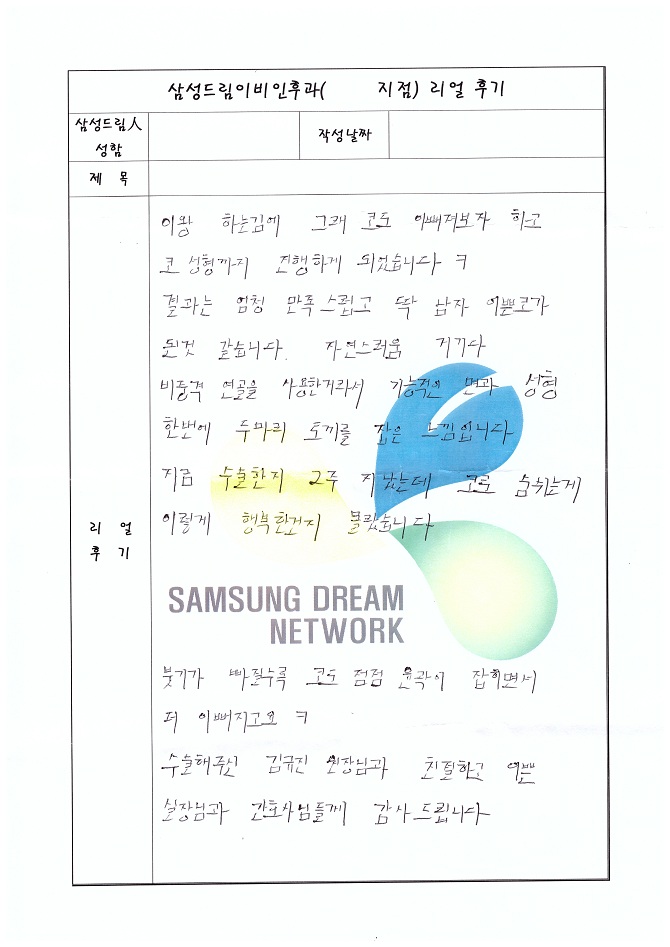 삼성드림이비인후과(        지점) 리얼 후기
삼성드림人
성함
작성날짜
제 목
이왕 하는김에 그래 코도 이뻐져보자 하고
코 성형까지 진행하게 되었습니다 ㅋ
결과는 엄청 만족스럽고 딱 남자 이쁜코가
된것 같습니다. 자연스러움 거기다
비중격 연골을 사용한거라서 기능적인 면과 성형
한번에 두마리 토끼를 잡은 느낌입니다
지금 수술한지 2주 지났는데 코로 숨쉬는게
이렇게 행복한건지 몰랐습니다
리 얼
후 기
SAMSUNG DREAM
NETWORK
붓기가 빠질수록 코도 점점 윤곽이 잡히면서
더 이뻐지고요 ㅋ
수술해주신 김규진 원장님과 친절하고 이쁜
실장님과 간호사님들께 감사드립니다